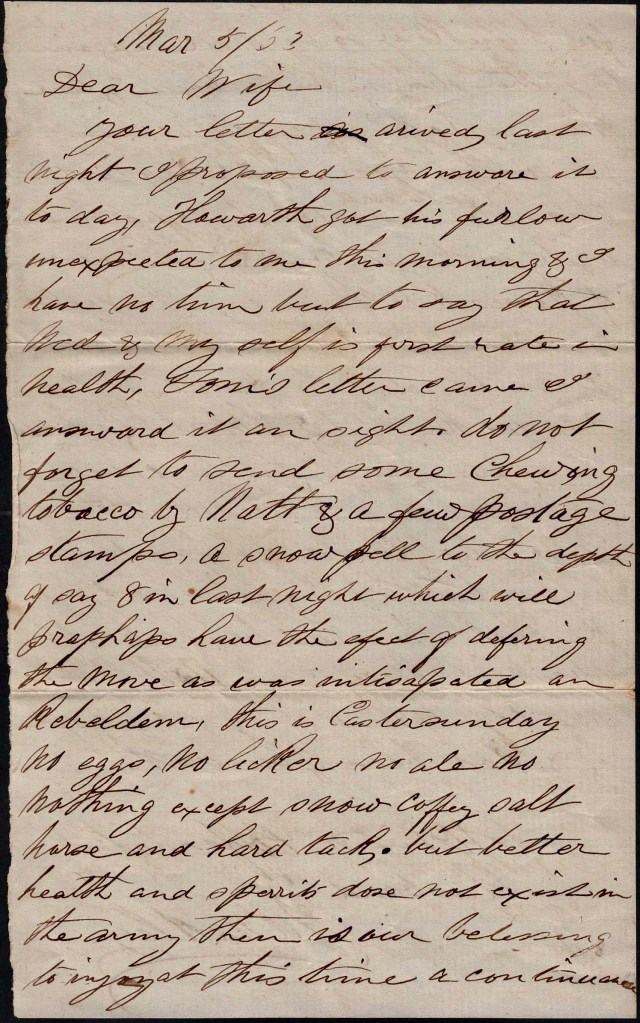 Mar 5/63
Dear Wife
Your letter is arived last
night I proposed to answare it
to day, Howarth got his furlow
unexpected to me this morning & I
have no tim but to say that
Ned & my self is first rate in
health, Tom's letter came I
answard it an sight. do not
forget to send some Chewing
tobacco by Natt & a few postage
stamps, a snow fell to the depth
of say 8 in last night which will
praphaps have the efect of defering
the move as was intisapated an
Rebeldem, this is Eastersunday
no eggs, no licker no ale no
nothing except snow coffey salt
horse and hard tack. but better
health and sperrits dose not exist in
the army then is our belessing
to injoy at this time a continuance